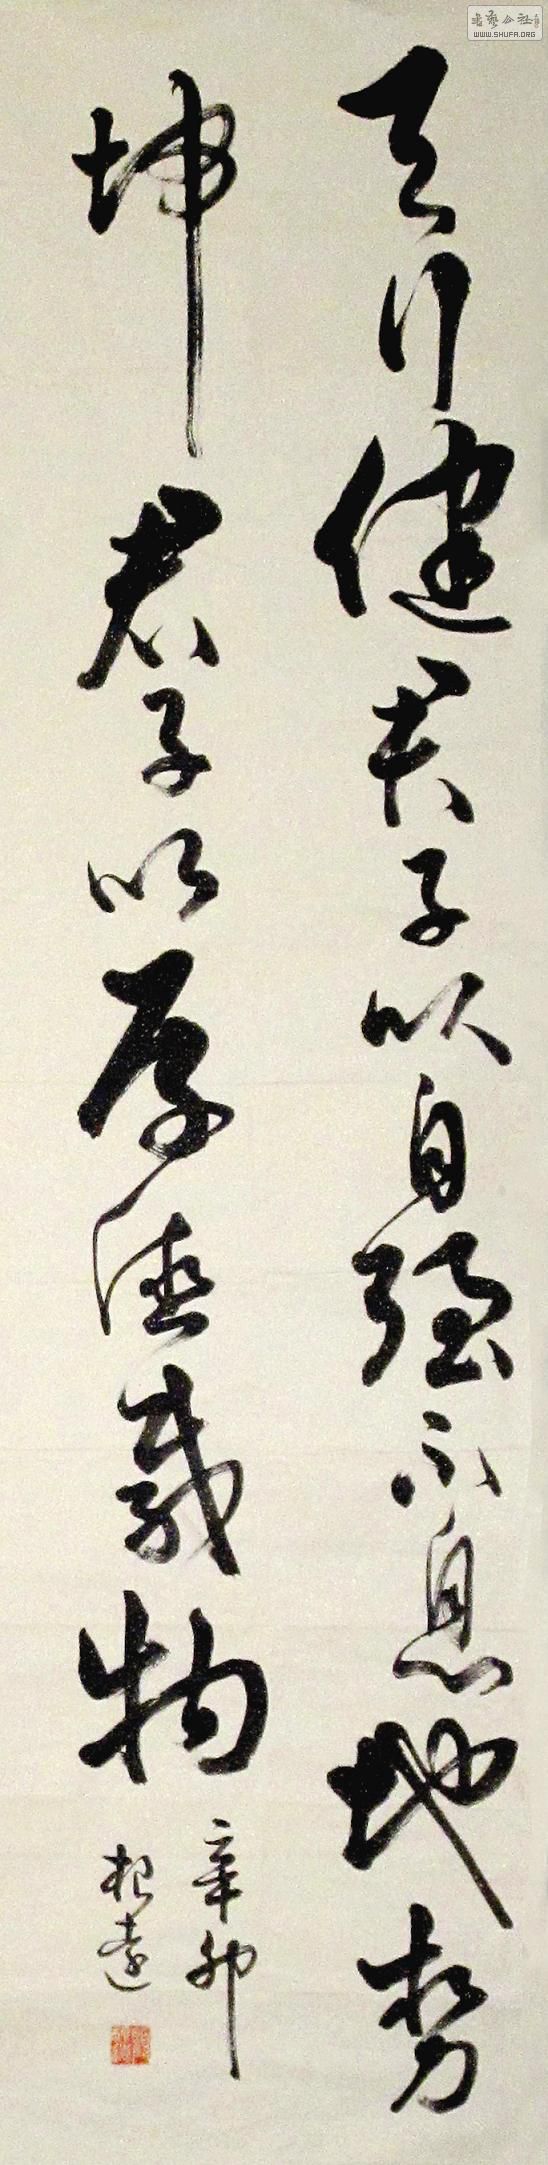 天行健君子以自强不息地势
坤君子以厚德载物
辛卯
根远
WWW.SHUFA.ORG